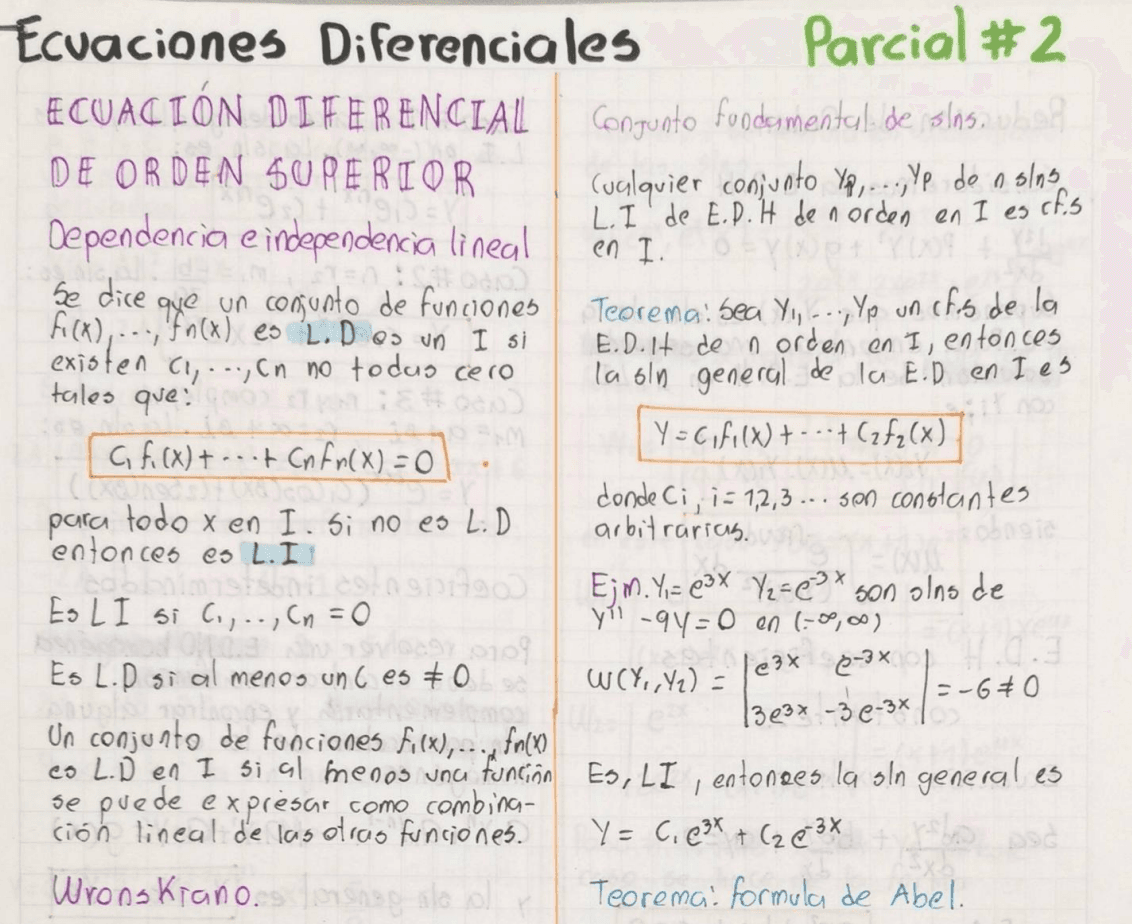 Ecuaciones Diferenciales
Parcial #2
ECUACIÓN DIFERENCIAL
DE ORDEN SUPERIOR
Dependencia e independencia lineal
Se dice que un conjunto de funciones
f₁(x),...,fn(x) es L.D es un I si
existen C₁,...,Cn no todas cero
tales que:
C₁f₁(x)+···+Cnfn(x)=0
para todo x en I. Si no es L.D
entonces es L.I
Es LI si C₁,..,Cn =0
Es L.D si al menos un C es ≠0
Un conjunto de funciones f₁(x),...,fn(x)
es L.D en I si al menos una función
se puede expresar como combina-
ción lineal de las otras funciones.
WronsKiano.
Conjunto fundamental de slns.
Cualquier conjunto Yp,...,Yp de n slns
L.I de E.D.H de n orden en I es cf.s
en I.
Teorema: Sea Y₁,...,Yp un cf.s de la
E.D.H de n orden en I, entonces
la sln general de la E.D en I es
Y=C₁f₁(x)+···+C₂f₂(x)
donde Ci, i=1,2,3... son constantes
arbitrarias.
Ejm. Y₁=e³ˣ Y₂=e⁻³ˣ son slns de
Y'' -9Y=0 en (-∞,∞)
W(Y₁,Y₂) = |e³ˣ e⁻³ˣ
3e³ˣ -3e⁻³ˣ| =-6≠0
Es, LI, entonces la sln general es
Y= C₁e³ˣ + C₂e⁻³ˣ
Teorema: formula de Abel.